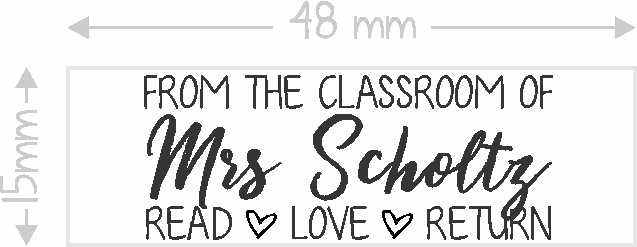 48 mm
15mm
FROM THE CLASSROOM OF
Mrs Scholtz
READ ♡ LOVE ♡ RETURN